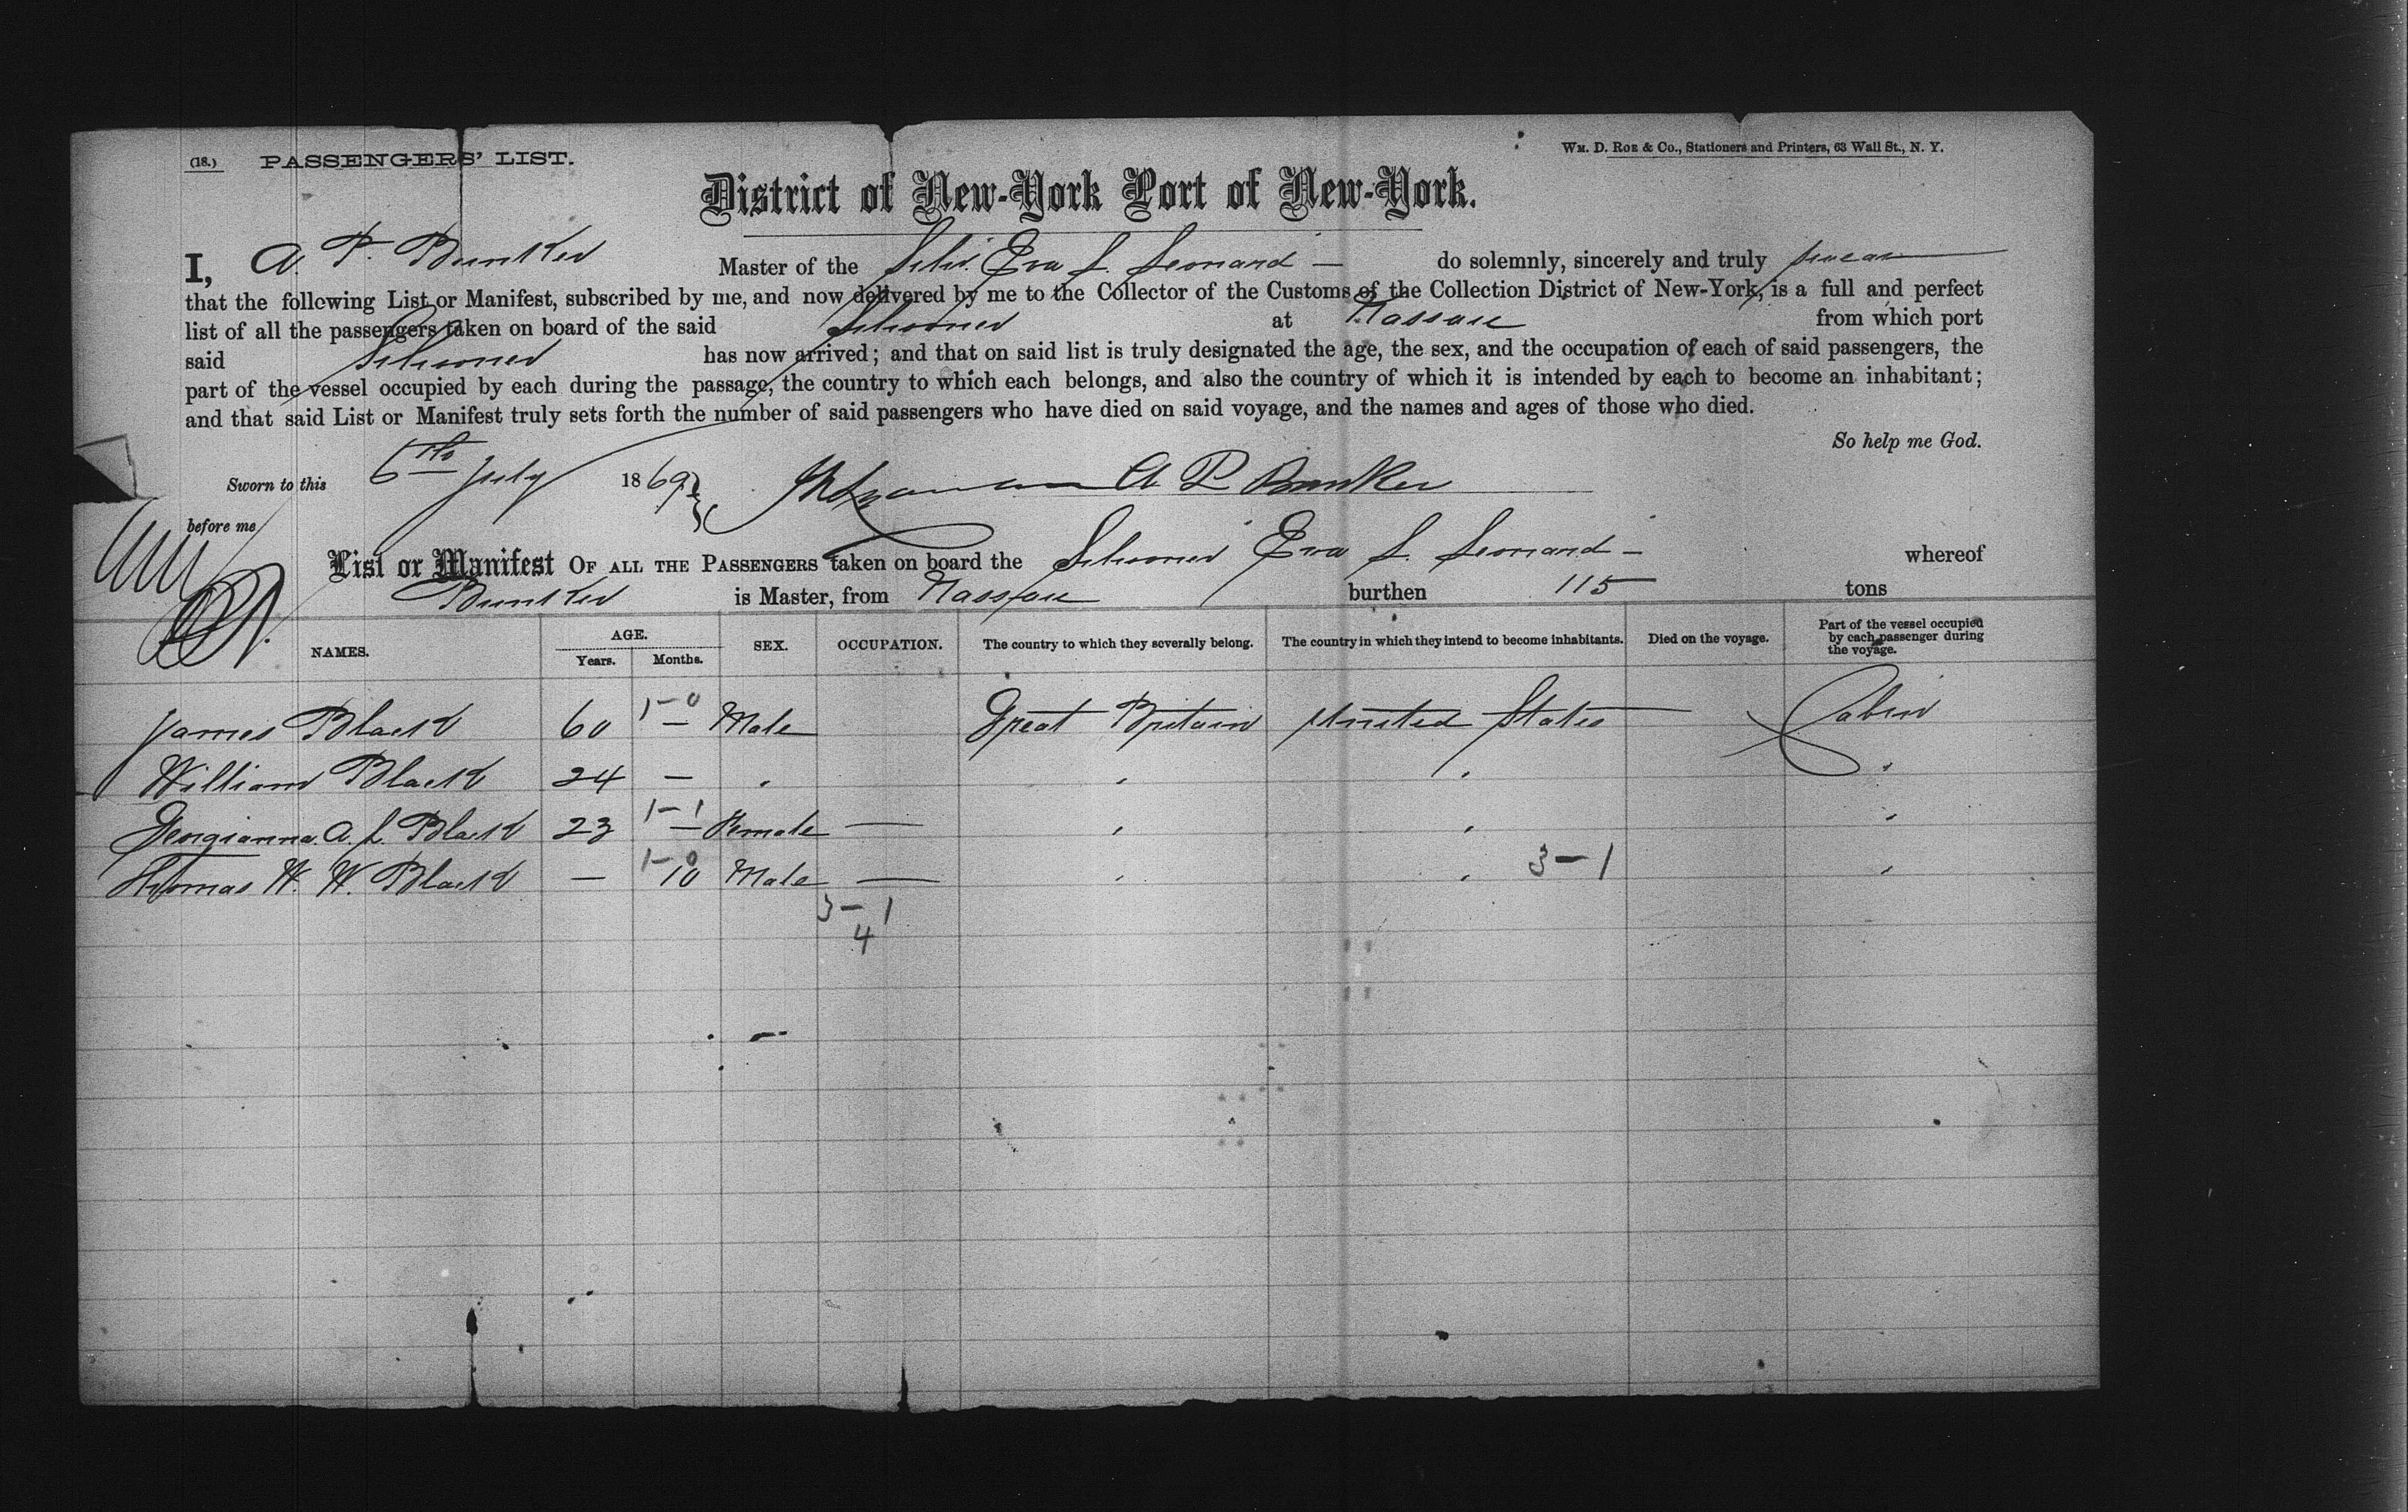 (18.) PASSENGERS' LIST.
Wm. D. Roe & Co., Stationers and Printers, 63 Wall St., N. Y.
District of New-York Port of New-York.
I, A. P. Bunker Master of the Schr. Eva L. Leonard — do solemnly, sincerely and truly swear
that the following List or Manifest, subscribed by me, and now delivered by me to the Collector of the Customs of the Collection District of New-York, is a full and perfect
list of all the passengers taken on board of the said Schooner at Nassau from which port
said Schooner has now arrived; and that on said list is truly designated the age, the sex, and the occupation of each of said passengers, the
part of the vessel occupied by each during the passage, the country to which each belongs, and also the country of which it is intended by each to become an inhabitant;
and that said List or Manifest truly sets forth the number of said passengers who have died on said voyage, and the names and ages of those who died.
So help me God.
Sworn to this 6th July 1869 A P Bunker
before me
List or Manifest OF ALL THE PASSENGERS taken on board the Schooner Eva L. Leonard — whereof
Bunker is Master, from Nassau burthen 115 tons
NAMES. AGE. Years. Months. SEX. OCCUPATION. The country to which they severally belong. The country in which they intend to become inhabitants. Died on the voyage. Part of the vessel occupied by each passenger during the voyage.
James Black 60 1-0 — Male Great Britain United States Cabin
William Black 24 — " " " "
Georgianna A. L. Black 23 1-1 — Female — " " "
Thomas W. W. Black — 1-0 10 Male — " " 3-1 "
3-1
4